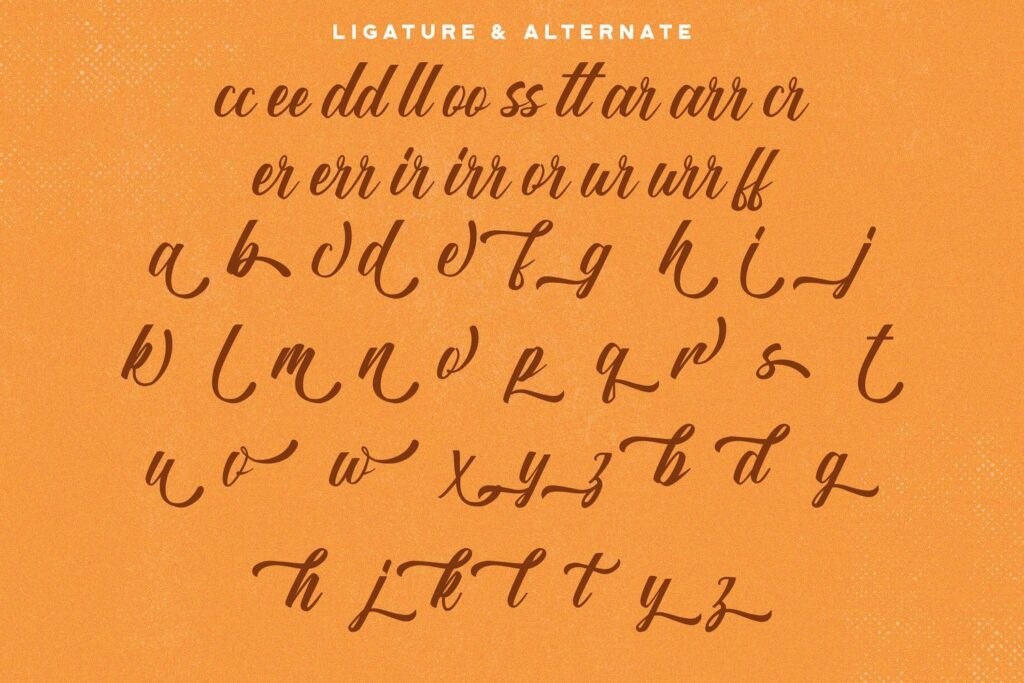 LIGATURE & ALTERNATE
cc ee dd ll oo ss tt ar arr cr
er err ir irr or ur urr ff
a b c d e f g h i j
k l m n o p q r s t
u v w x y z b d g
h j k l t y z